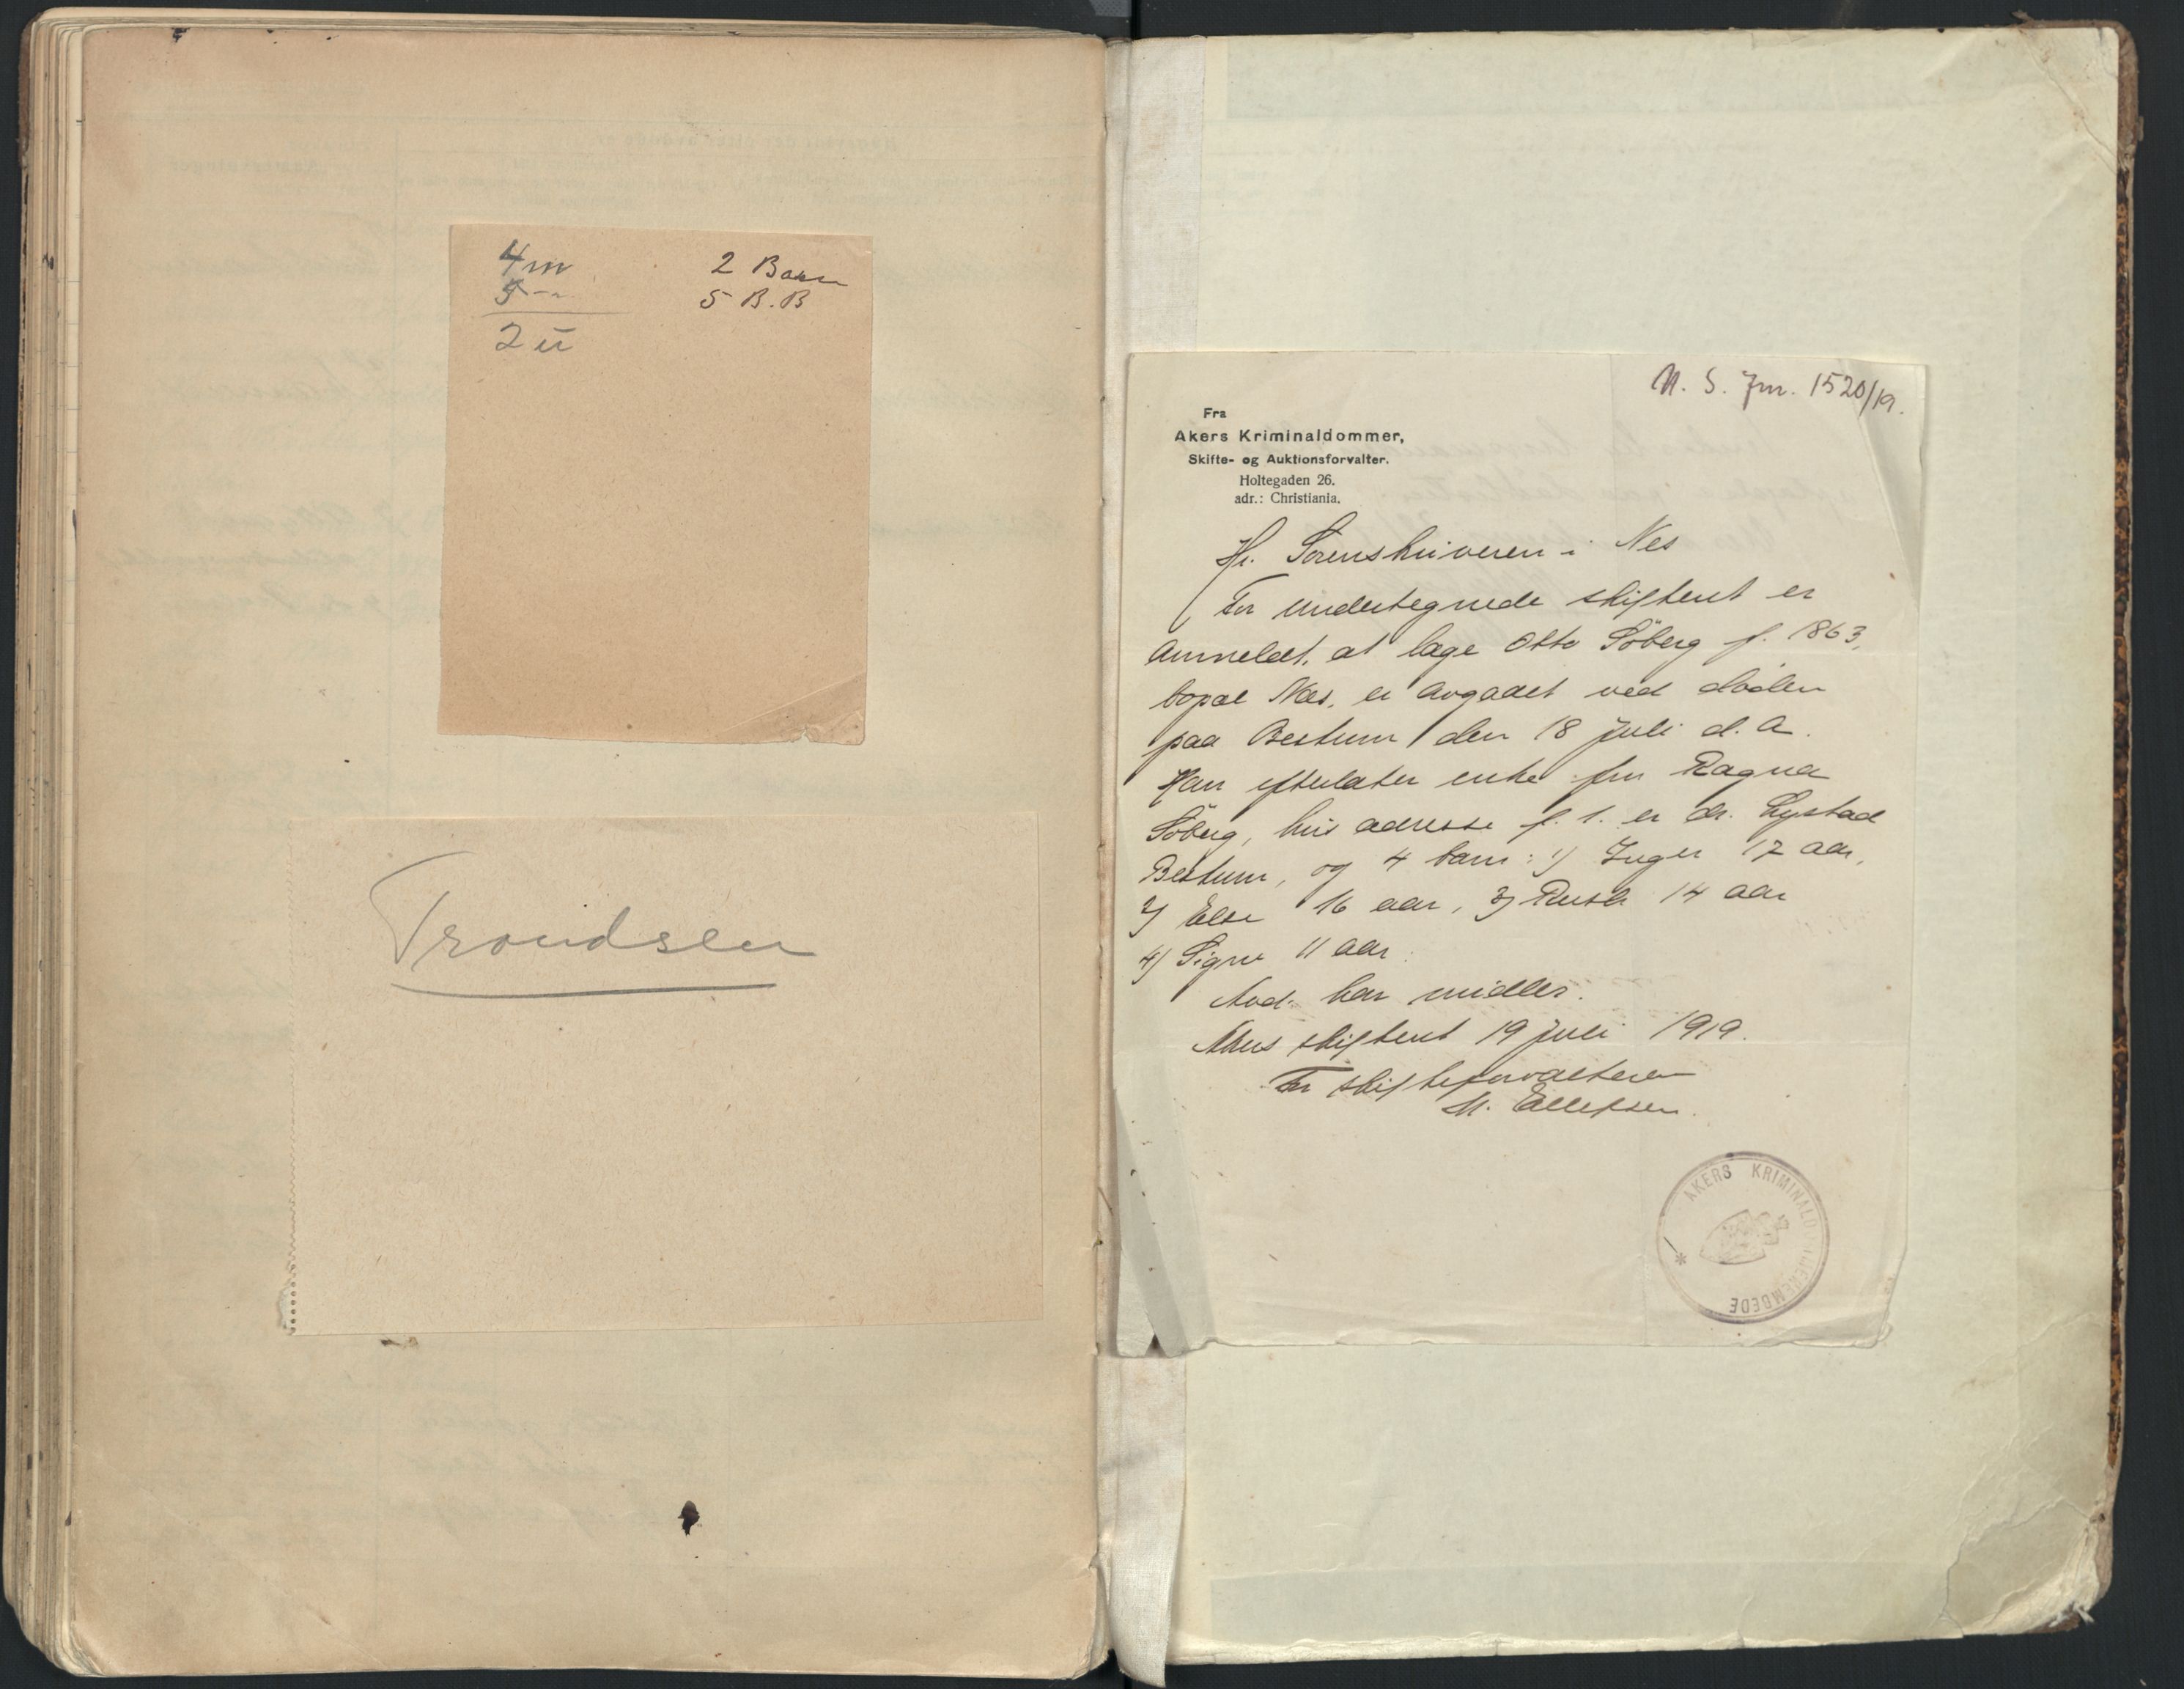 4 m
5 -
2 u
2 Barn
5 B. B
Trondsen
N. S. Jnr. 1520/19.
Fra
Akers Kriminaldommer,
Skifte- og Auktionsforvalter.
Holtegaden 26.
adr.: Christiania.
Hr. Sorenskriveren i Nes
For undertegnede skifteret er
anmeldt, at læge Otto Söberg f. 1863,
bopæl Næs, er avgaaet ved döden
paa Bestum den 18 juli d. a.
Han efterlater enke fru Ragna
Söberg, hvis adresse f. t. er dr. Lystad
Bestum, og 4 barn: 1) Inger 17 aar,
2) Else 16 aar, 3) Ruth 14 aar
4) Signe 11 aar.
Avd. har midler.
Akers skifteret 19 juli 1919.
For skifteforvalteren
M. Ellefsen.
AKERS KRIMINALDOMMEREMBEDE